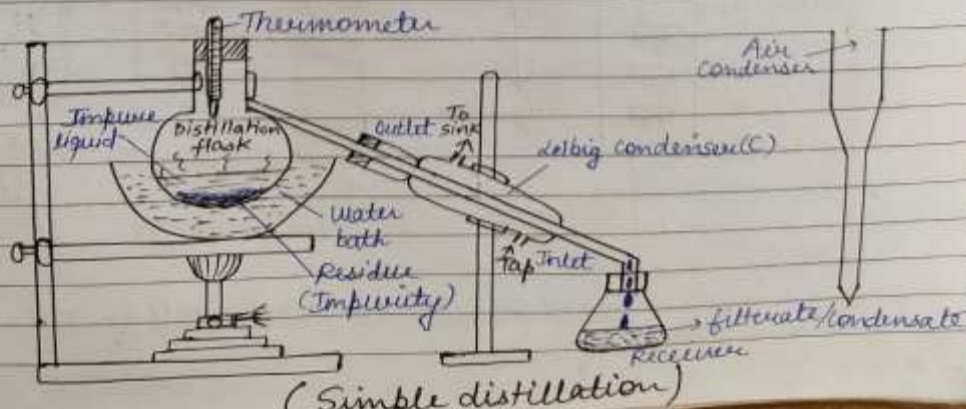 Thermometer
Air
condenser
Impure
liquid
Distillation
flask
Outlet
To
sink
Leibig condenser(C)
Water
bath
Residue
(Impurity)
Tap
Inlet
filterate/condensate
Receiver
(Simple distillation)